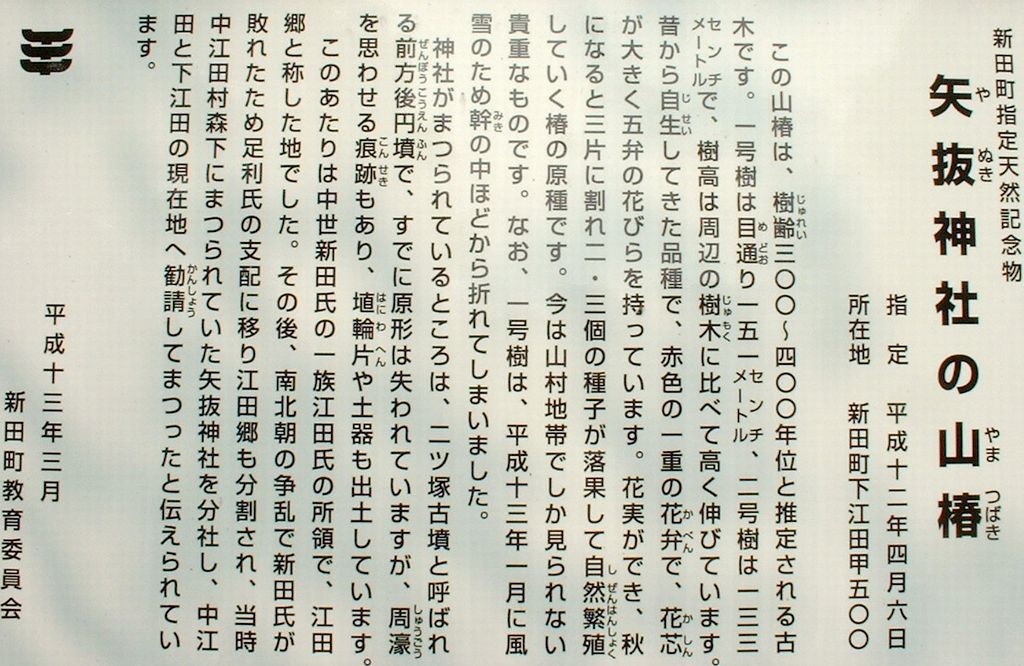 新田町指定天然記念物
矢抜神社の山椿
や ぬき やま つばき
指定 平成十二年四月六日
所在地 新田町下江田甲五〇〇
この山椿は、樹齢三〇〇～四〇〇年位と推定される古
じゅれい
木です。一号樹は目通り一五一センチメートル、二号樹は一三三
め どお
センチメートルで、樹高は周辺の樹木に比べて高く伸びています。
じゅもく
昔から自生してきた品種で、赤色の一重の花弁で、花芯
じ せい か べん か しん
が大きく五弁の花びらを持っています。花実ができ、秋
になると三片に割れ二・三個の種子が落果して自然繁殖
し ぜんはんしょく
していく椿の原種です。今は山村地帯でしか見られない
貴重なものです。なお、一号樹は、平成十三年一月に風
雪のため幹の中ほどから折れてしまいました。
みき
神社がまつられているところは、二ツ塚古墳と呼ばれ
る前方後円墳で、すでに原形は失われていますが、周濠
ぜんぽうこうえんふん しゅうごう
を思わせる痕跡もあり、埴輪片や土器も出土しています。
こんせき はにわ へん
このあたりは中世新田氏の一族江田氏の所領で、江田
郷と称した地でした。その後、南北朝の争乱で新田氏が
敗れたため足利氏の支配に移り江田郷も分割され、当時
中江田村森下にまつられていた矢抜神社を分社し、中江
田と下江田の現在地へ勧請してまつったと伝えられてい
かんしょう
ます。
平成十三年三月
新田町教育委員会